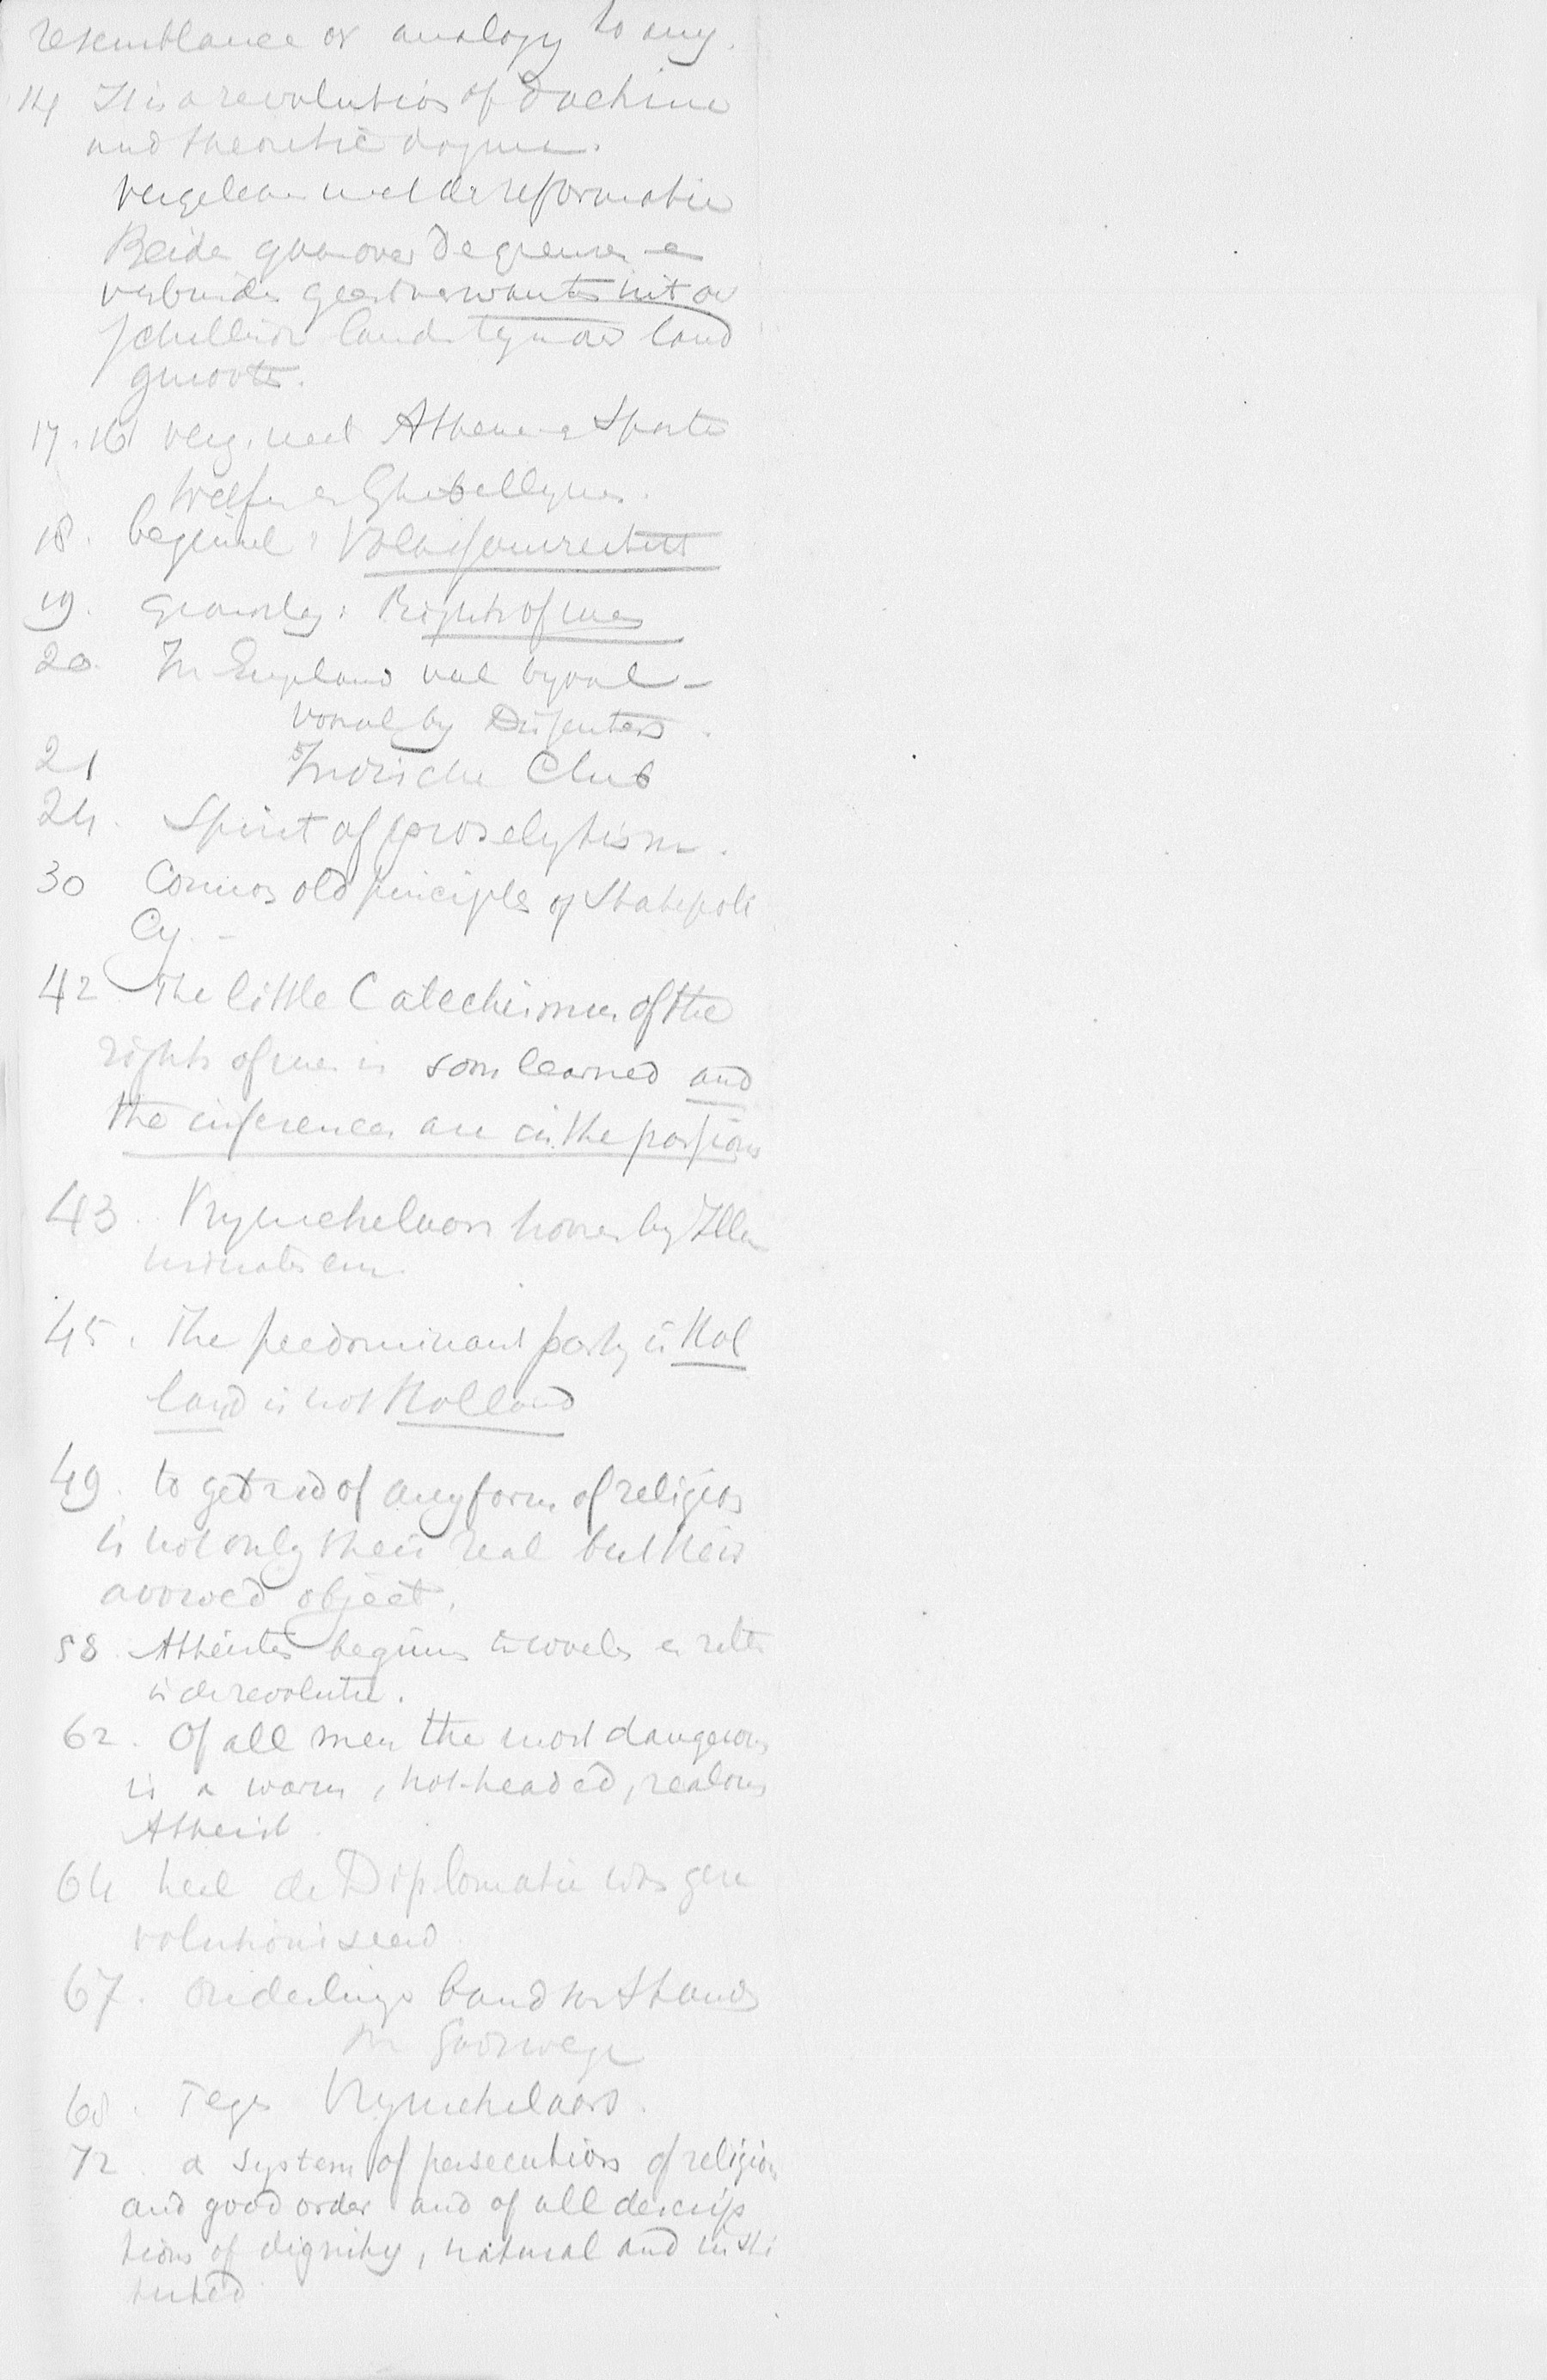 resemblance or analogy to any.
14 It is a revolution of doctrine
and theoretic dogma.
Vergeleken met de reformatie
Beide gaan over de grenzen en
verbinden geestverwanten uit ver
schillende landen tegenover land
genooten.
17.16 verg. met Athene en Sparta
Welfen en Ghibellynen.
18. beginsel: Volkssouvereiniteit
19. grondslag: Rights of men
20. In England vat byval -
vooral by Dissenters.
21 Indische Club
24. Spirit of proselytism.
30 Common old principles of State poli
cy. -
42 The little Catechismus of the
rights of men is soon learned and
the inferences are in the passions
43. Vrymetselaars by Illu
minaten
45. The predominant party in Hol
land is not Holland
49. to get rid of any form of religion
is not only their real but their
avowed object.
58. Atheisten beginnen en
in de revolutie.
62. Of all men the most dangerous
is a warm, hot-headed, zealous
Atheist.
64 heel de Diplomatie was gere
volutioniseerd.
67. Onderlinge band der Standen
68. Tegen Vrymetselaars.
72. a system of persecution of religion
and good order and of all descrip
tions of dignity, natural and insti
tuted